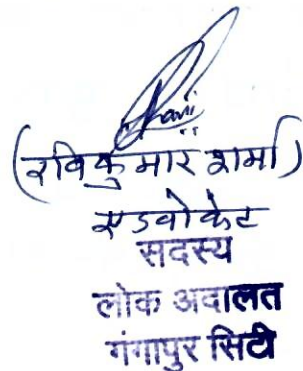 Ravi
(रविकुमार शर्मा)
एडवोकेट
सदस्य
लोक अदालत
गंगापुर सिटी